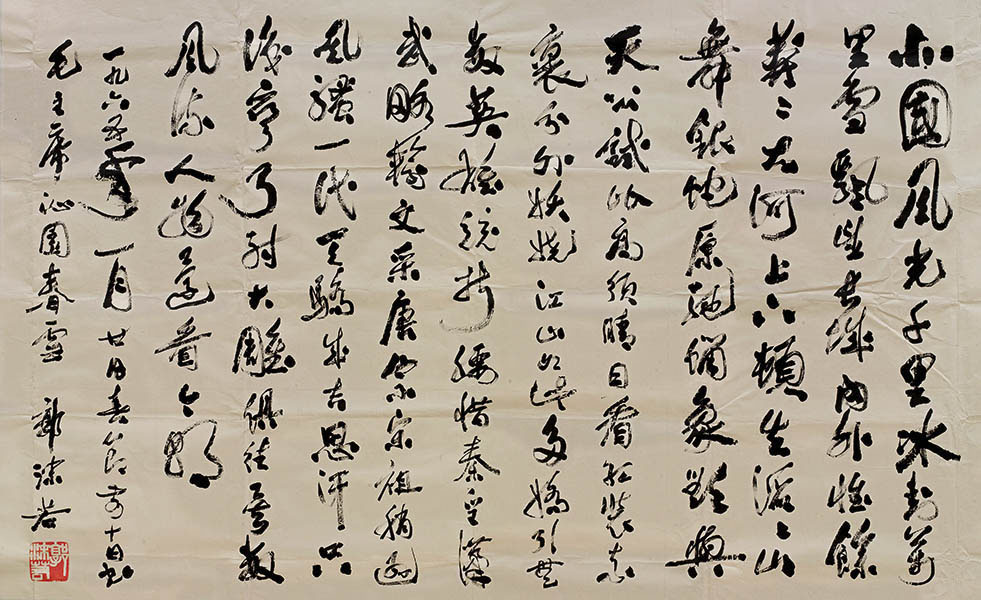 北國風光千里冰封萬
里雪飄望長城內外惟餘
莽〻大河上下頓失滔〻山
舞銀蛇原馳蠟象欲與
天公試比高須晴日看紅裝素
裹分外妖嬈江山如此多嬌引無
數英雄競折腰惜秦皇漢
武略輸文采唐宗宋祖稍遜
風騷一代天驕成吉思汗只
識彎弓射大雕俱往矣數
風流人物還看今朝
一九六五年一月廿日春節前十日書
毛主席沁園春雪 郭沫若
郭沫若